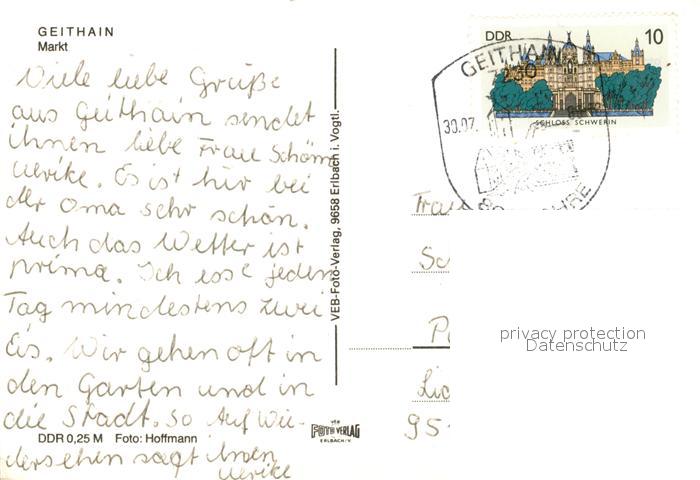 GEITHAIN
Markt
Viele liebe Grüße
aus Geithain sendet
ihnen liebe Frau Schöm
Ulrike. Es ist hir bei
der Oma sehr schön.
Auch das Wetter ist
prima. Ich esse jeden
Tag mindestens zwei
Eis. Wir gehen oft in
den Garten und in
die Stadt. So Auf Wie-
dersehen sagt ihnen
Ulrike
DDR 0,25 M Foto: Hoffmann
VEB-Foto-Verlag, 9658 Erlbach i. Vogtl.
FOTO VERLAG
ERLBACH/V.
DDR 10
SCHLOSS SCHWERIN
GEITHAIN
30.07.
JAHRE
Frau
Sc
P
Lic
95
privacy protection
Datenschutz